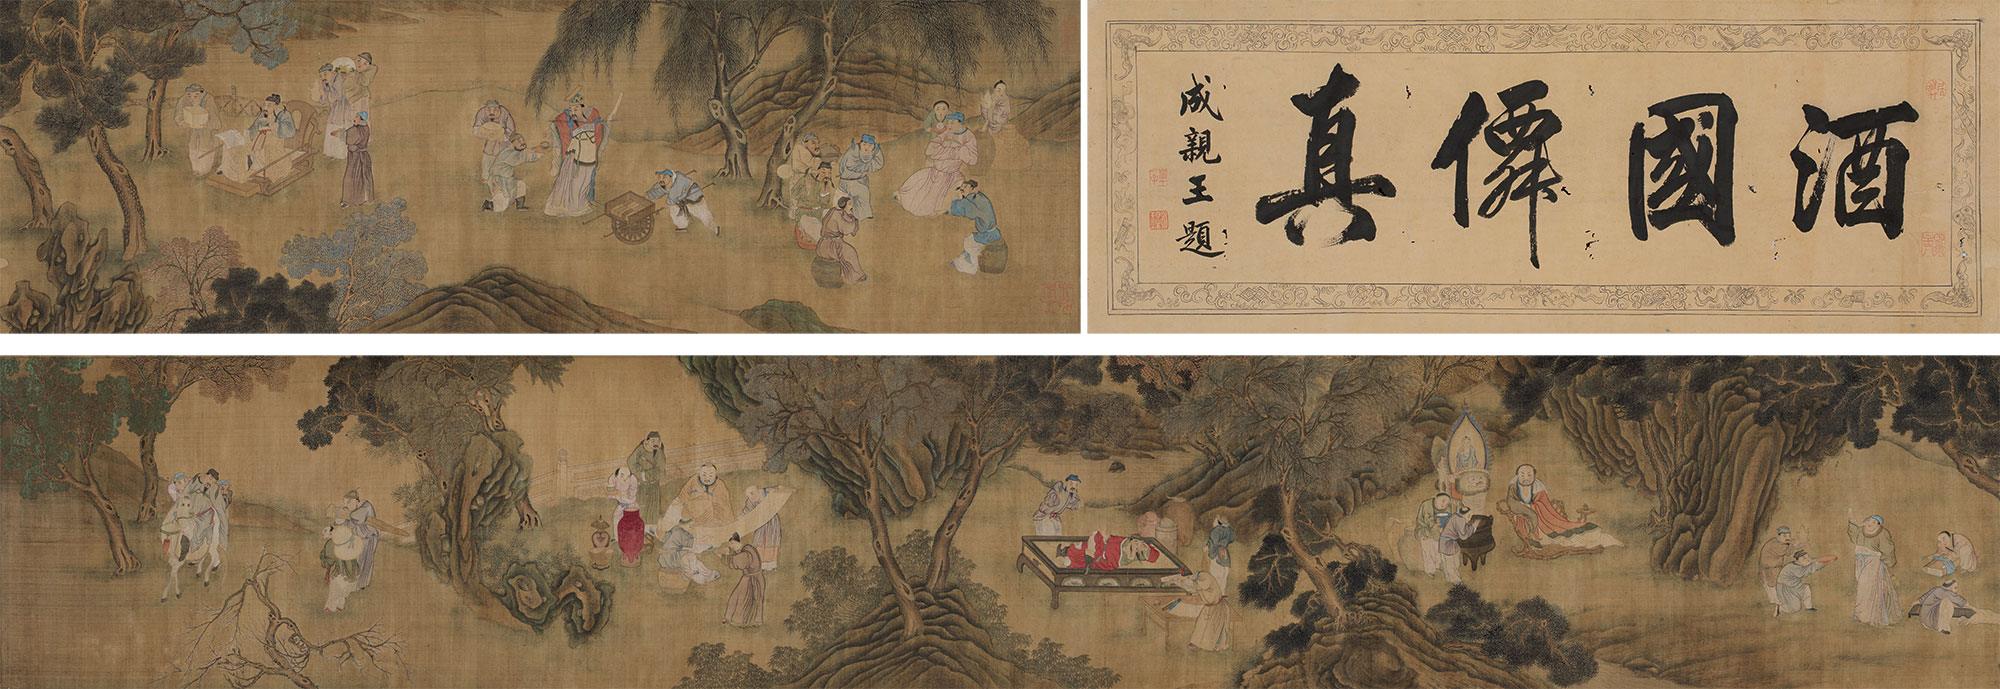 酒國僊真
成親王題